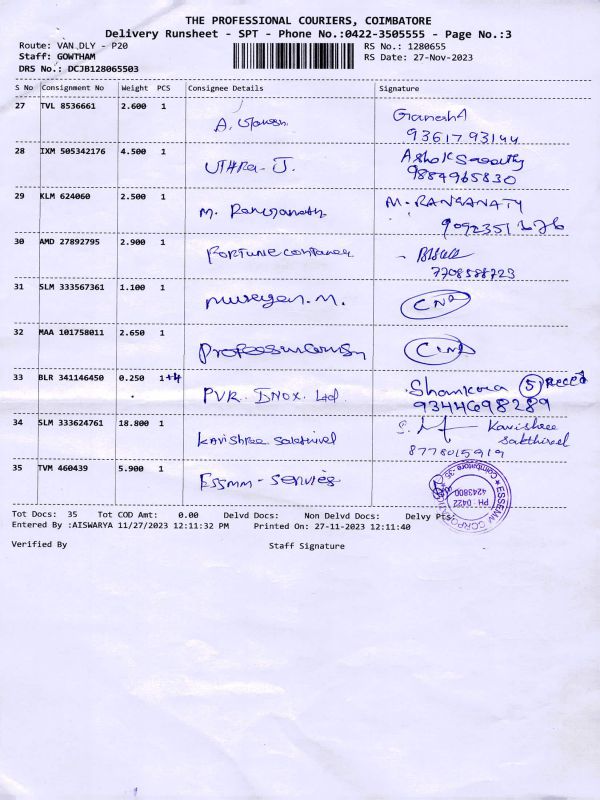 THE PROFESSIONAL COURIERS, COIMBATORE
Delivery Runsheet - SPT - Phone No.:0422-3505555 - Page No.:3
Route: VAN.DLY - P20 RS No.: 1280655
Staff: GOWTHAM RS Date: 27-Nov-2023
DRS No.: DCJB128065503
S No Consignment No Weight PCS Consignee Details Signature
27 TVL 8536661 2.600 1 A. GaneshA
93617 93144
28 IXM 505342176 4.500 1 UTHRA-J. Ashok
9884965830
29 KLM 624060 2.500 1 M. Ranganath M. RANGANATH
9092351
30 AMD 27892795 2.900 1 FORTUNE
7708588723
31 SLM 333567361 1.100 1 murugan. M.
32 MAA 101758011 2.650 1
33 BLR 341146450 0.250 1+4 PVR. INOX. Ltd. Shankara 5
9344698289
34 SLM 333624761 18.800 1 Kavishree sakthivel Kavishree
sakthivel
8778015919
35 TVM 460439 5.900 1 ESSMM - Servies
ESSEMM CORPORATION
PH 0422
4243800
Coimbatore-35
Tot Docs: 35 Tot COD Amt: 0.00 Delvd Docs: Non Delvd Docs: Delvy Pts:
Entered By :AISWARYA 11/27/2023 12:11:32 PM Printed On: 27-11-2023 12:11:40
Verified By Staff Signature